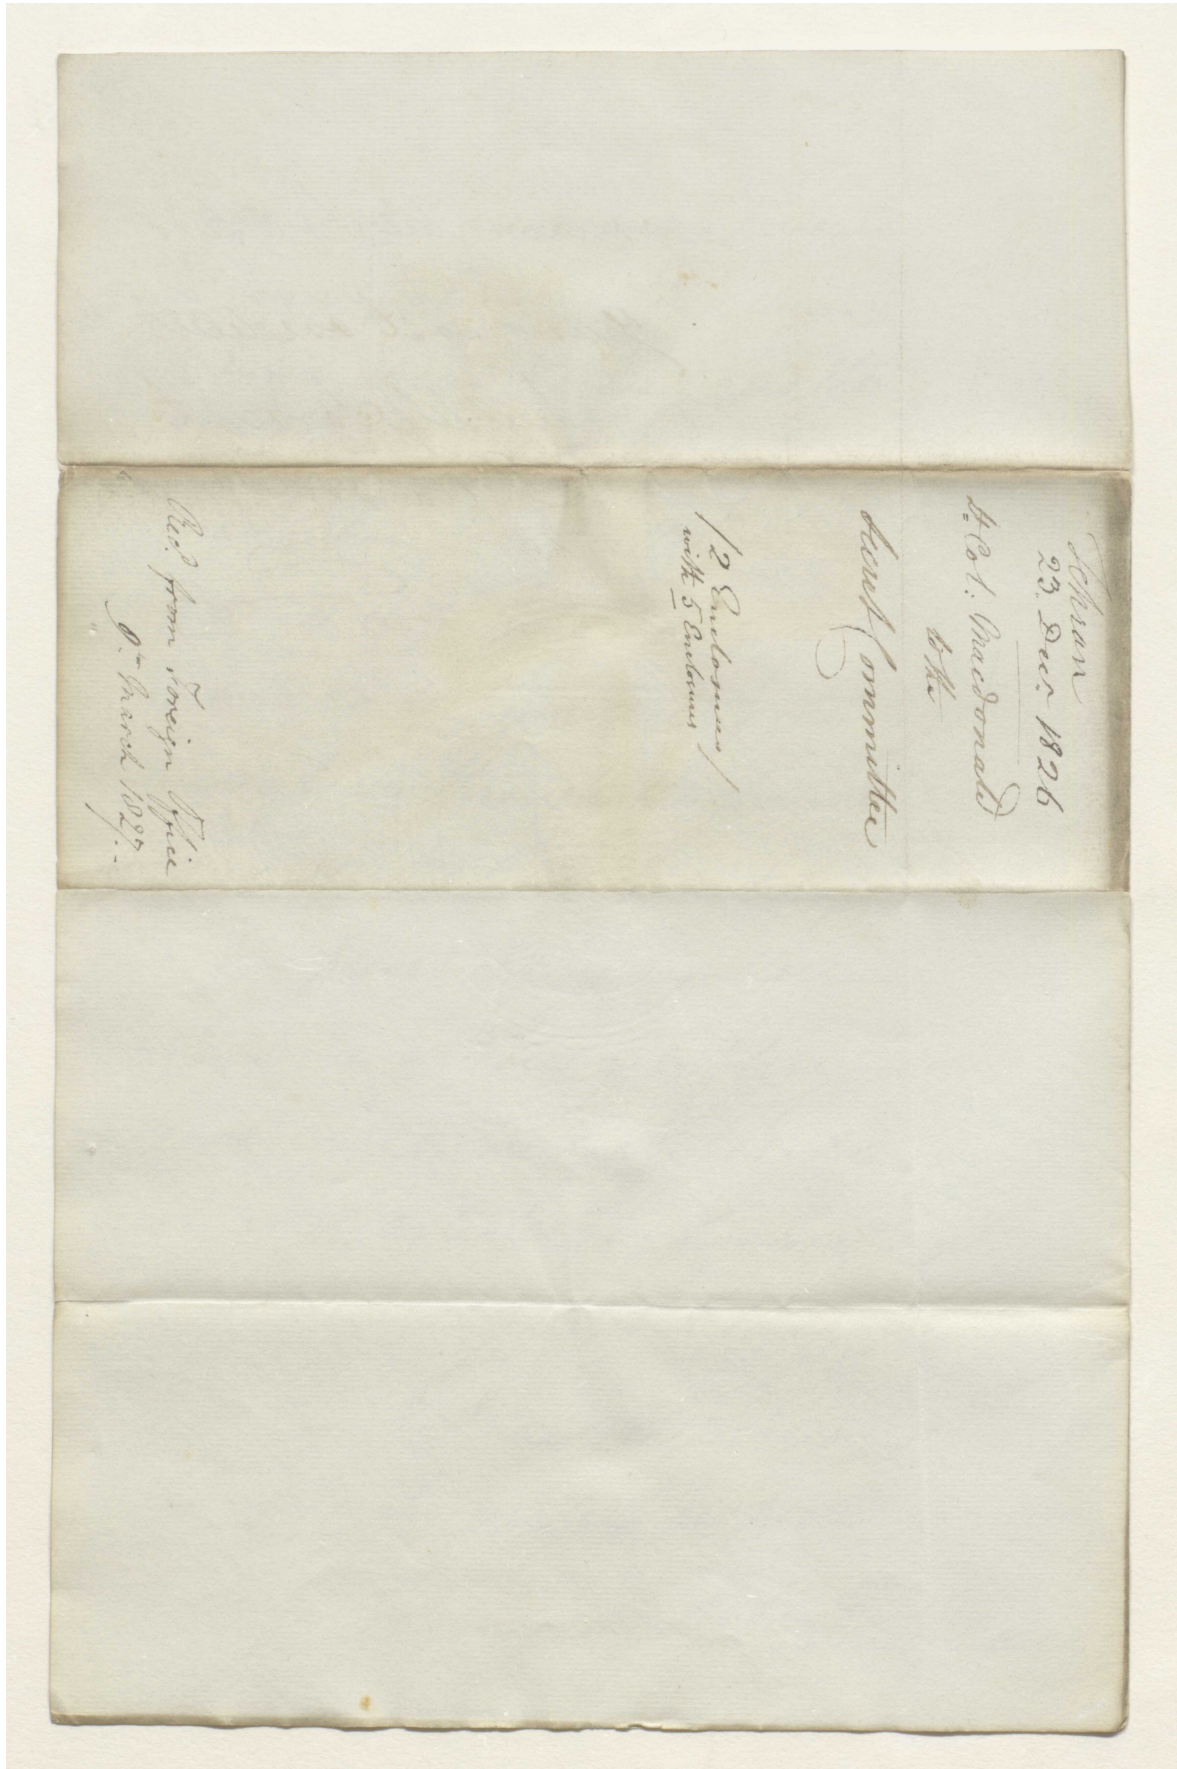 Tehran
23. Decr 1826
Lt. Col: Macdonald
to the
Secret Committee
/2 Enclosures/
with 5 Enclosures
Recd from Foreign Office
9th March 1827.-